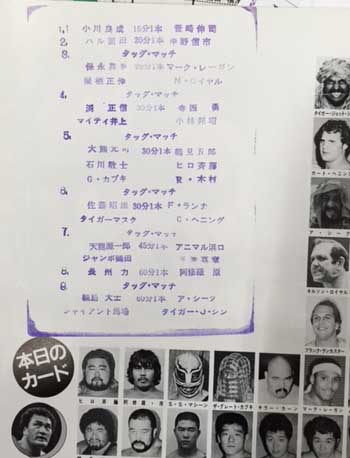 1. 小川良成 15分1本 菅崎伸司
2. ハル薗田 20分1本 中野信市
3. タッグ・マッチ
マーク・レーガン
N・ロイヤル
4. タッグ・マッチ
渕 正信 30分1本 寺西 勇
マイティ井上 小林邦昭
5. タッグ・マッチ
大熊元司 30分1本 鶴見五郎
石川敬士 ヒロ斉藤
G・カブキ R・木村
6. タッグ・マッチ
佐藤昭雄 30分1本 F・ランカ
タイガーマスク C・ヘニング
7. タッグ・マッチ
天龍源一郎 45分1本 アニマル浜口
ジャンボ鶴田 谷津嘉章
8. 長州 力 60分1本 阿修羅 原
9. タッグ・マッチ
輪島 大士 60分1本 ア・シーク
ジャイアント馬場 タイガー・J・シン
タイガー・ジェット・シ
カート・ヘニング
ア・シーク
ネルソン・ロイヤル
フランク・ランカスター
本日のカード
ヒロ斉藤
阿修羅・原
S・S・マシーン
ザ・グレート・カブキ
キラー・カーン
マーク・レーガン